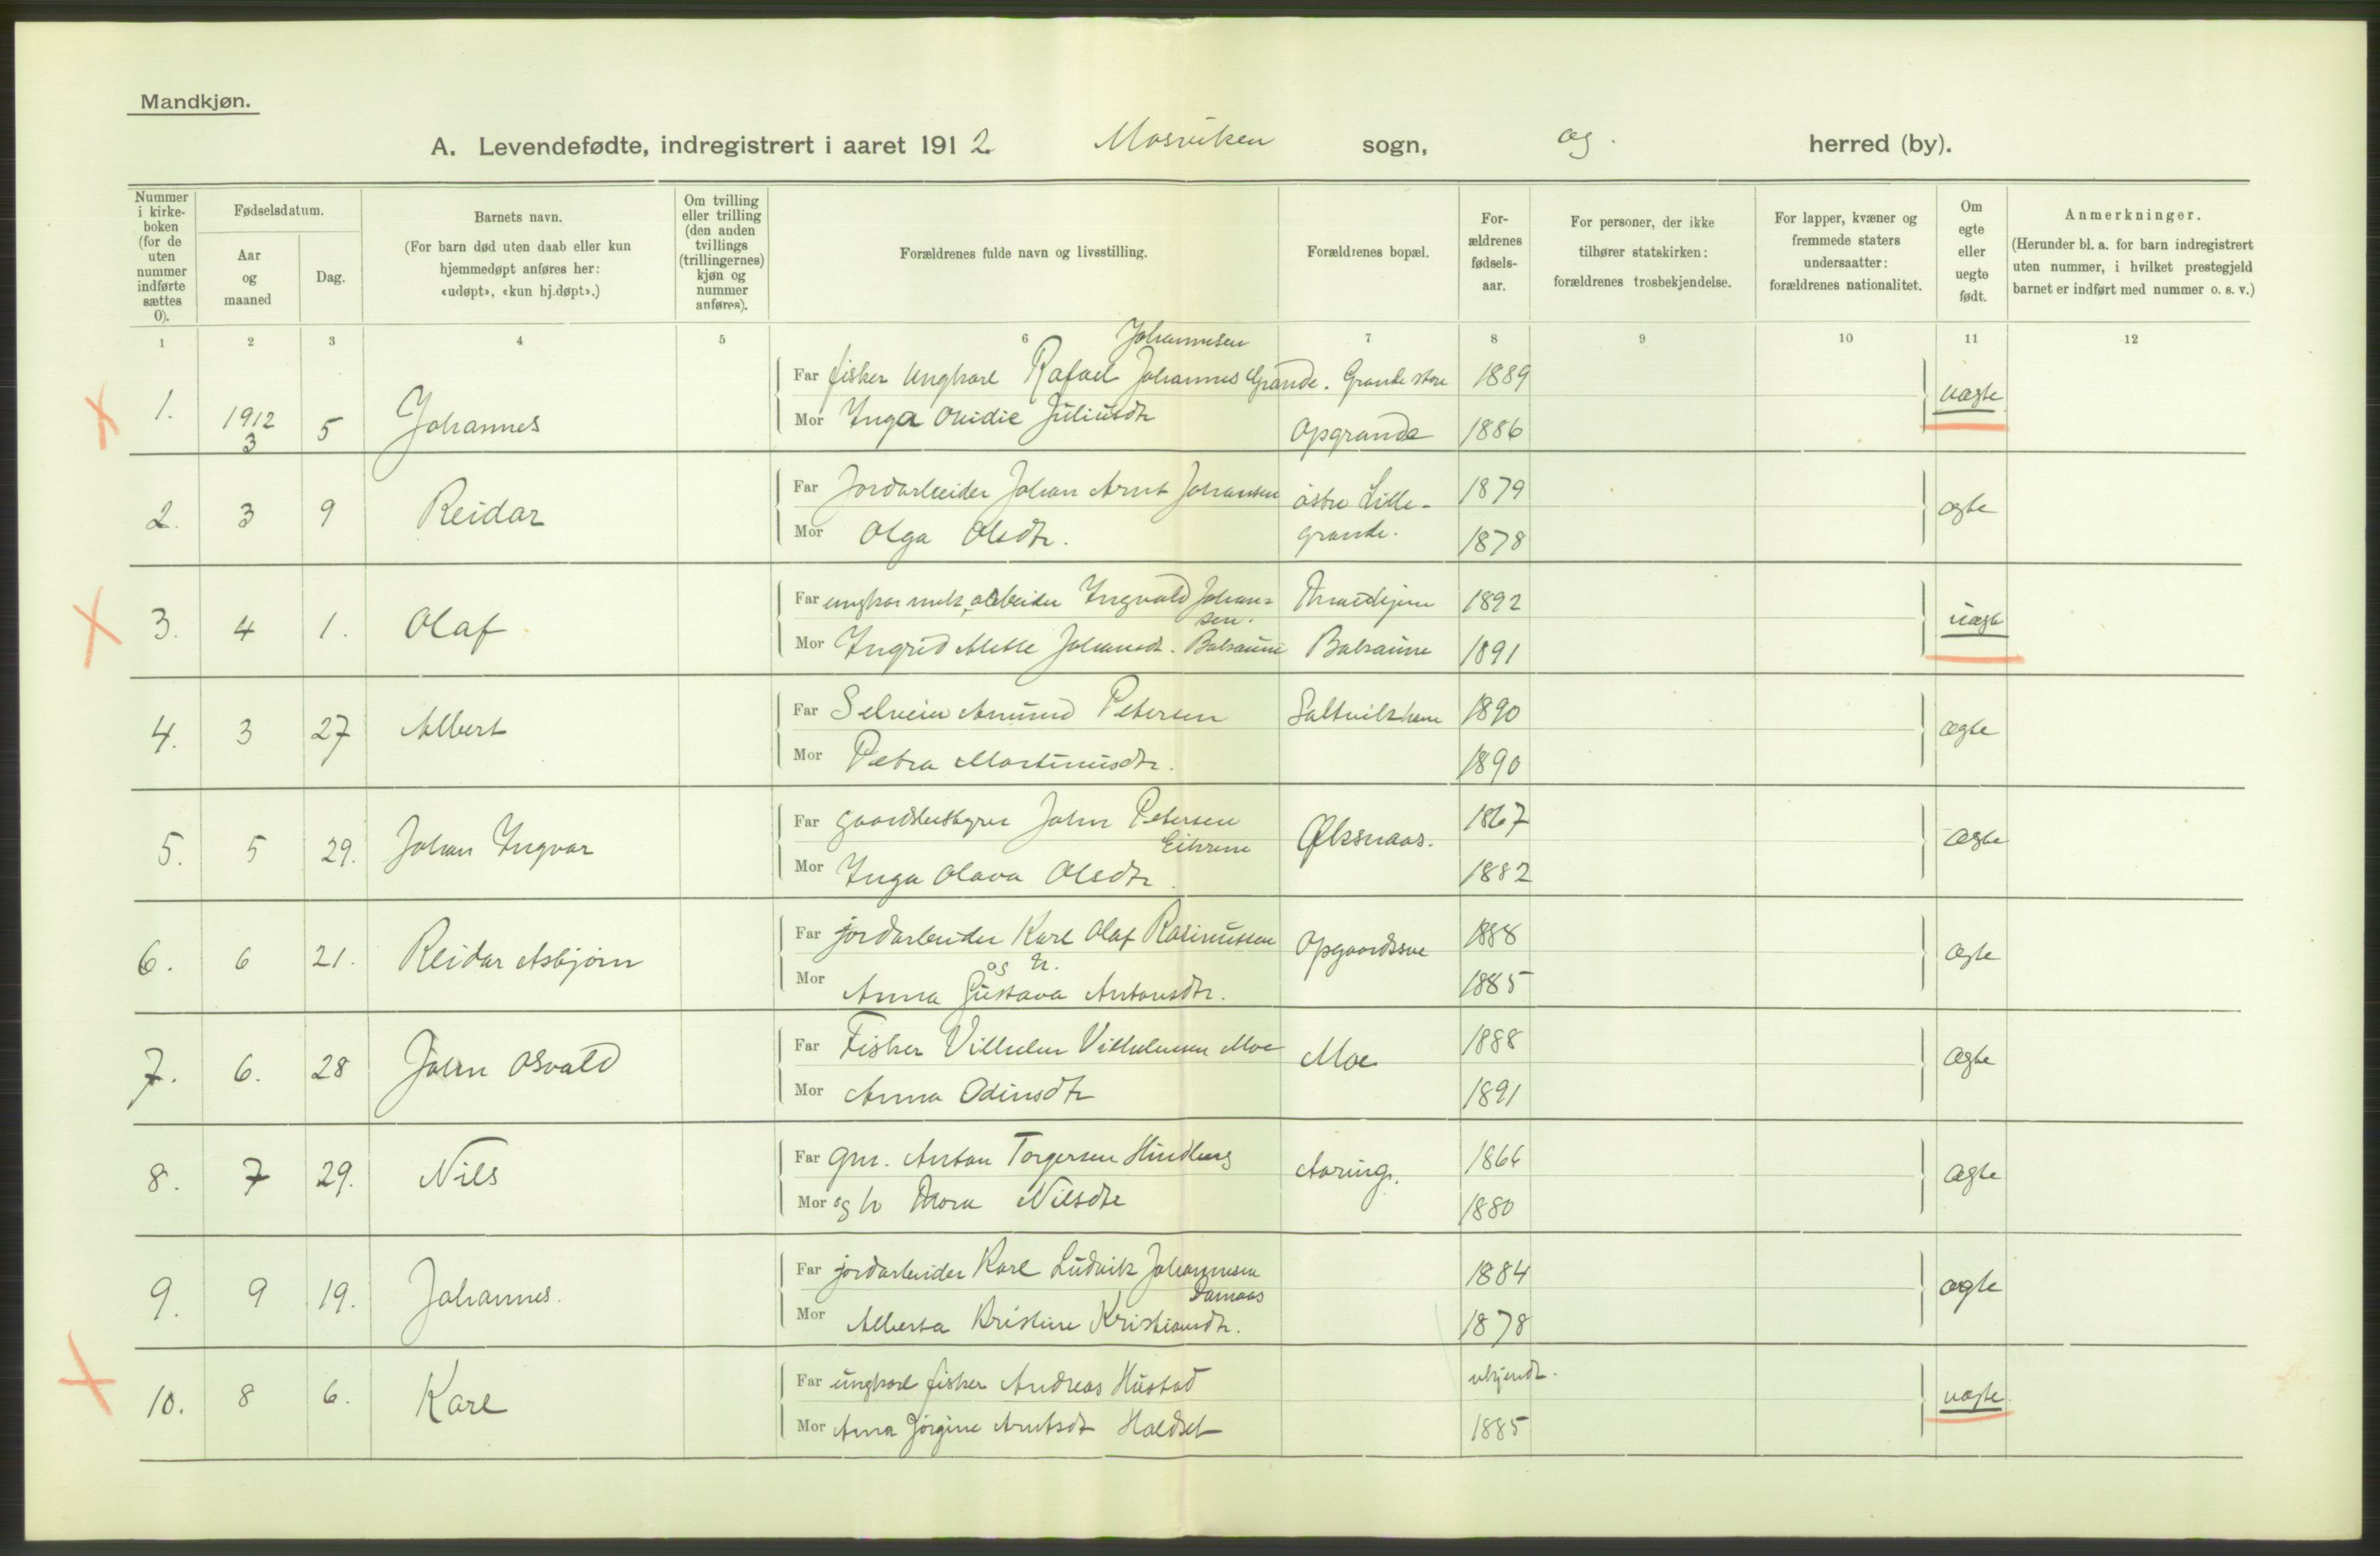 Mandkjøn.
A. Levendefødte, indregistrert i aaret 1912 Mosviken sogn, og herred (by).
Nummer i kirke-boken (for de uten nummer indførte sættes 0).
Fødselsdatum.
Aar og maaned
Dag.
Barnets navn.
(For barn død uten daab eller kun hjemmedøpt anføres her: «udøpt», «kun hj.døpt».)
Om tvilling eller trilling (den anden tvillings (trillingernes) kjøn og nummer anføres).
Forældrenes fulde navn og livsstilling.
Forældrenes bopæl.
For-ældrenes fødsels-aar.
For personer, der ikke tilhører statskirken: forældrenes trosbekjendelse.
For lapper, kvæner og fremmede staters undersaatter: forældrenes nationalitet.
Om egte eller uegte født.
Anmerkninger.
(Herunder bl. a. for barn indregistrert uten nummer, i hvilket prestegjeld barnet er indført med nummer o. s. v.)
1 2 3 4 5 6 7 8 9 10 11 12
Johannesen
1. 1912 3 5 Johannes Far fisker Ungkarl Rafael Johannes Grande. Grande store 1889 uægte
Mor Inga Ovidie Juliusdtr Opgrande 1886
2. 3 9 Reidar Far Jordarbeider Johan Arnt Johansen østre Lille- 1879 ægte
Mor Olga Olsdtr. grande. 1878
3. 4 1. Olaf Far ungkar arbeider Ingvald Johan- 1892 uægte
sen.
Mor Ingrid Mette Johansdt. Balsaune Balsaune 1891
4. 3 27 Albert Far Selveier Amund Petersen Saltvikhavn 1890 ægte
Mor Petra Martinusdtr. 1890
5. 5 29. Johan Ingvar Far gaardbestyrer John Petersen Øksnaas. 1867 ægte
Mor Inga Olava Olsdtr 1882
6. 6 21. Reidar Asbjørn Far jordarbeider Karl Olaf Rasmussen 1888 ægte
og h.
Mor Anna Gustava Antonsdtr. 1885
7. 6. 28 John Osvald Far Fisker Vilhelm Vilhelmsen Moe Moe 1888 ægte
Mor Anna Odinsdtr 1891
8. 7 29. Nils Far gm. Anton Torgersen Hindberg Aaring. 1866 ægte
Mor og h Nilsdtr 1880
9. 9 19. Johannes. Far jordarbeider Karl Ludvik Johannesen 1884 ægte
Damaas
Mor Alberta Kristine Kristiansdtr. 1878
10. 8 6. Karl Far ungkarl fisker Andreas Hustad ukjendt. uægte
Mor Anna Jørgine Arntsdt Haldset 1885